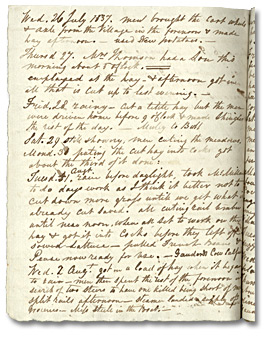 Wed. 26 July 1837. men brought the cart wheels
& axle from the village in the forenoon & made
hay afternoon — had new potatoes.
Thursd 27. Mrs Thomson had a Son this
morning about 5 o'clock —
employed at the hay - & afternoon got in
all that is cut up to last evening. —
Frid. 28 rainy - cut a little hay but the men
were driven home before 9 o'clock & made Shingles
the rest of the day. —
Sat. 29 still showery, men cutting the meadow
Mond. 31 patiny the cut hay into cocks got
about the third of it done:
Tuesd. 1 Augt. rain before daylight, took
to do days work as I think it better not to
cut down more grass until we get what is
already cut saved. all cutting
until near noon, when we set to work on the
hay & got it into Cocks before they left off.
Sowed Lettuce — picked French Beans
Pease now ready for use. — Cow Calf
Wed. 2 Augt. got in a load of hay when it began
to rain - men then spent the rest of the forenoon in
search of two Steers to have one killed being short of meat
split rails afternoon — Steamer landed a supply of
Groceries — Mrs Steele in the Boat.